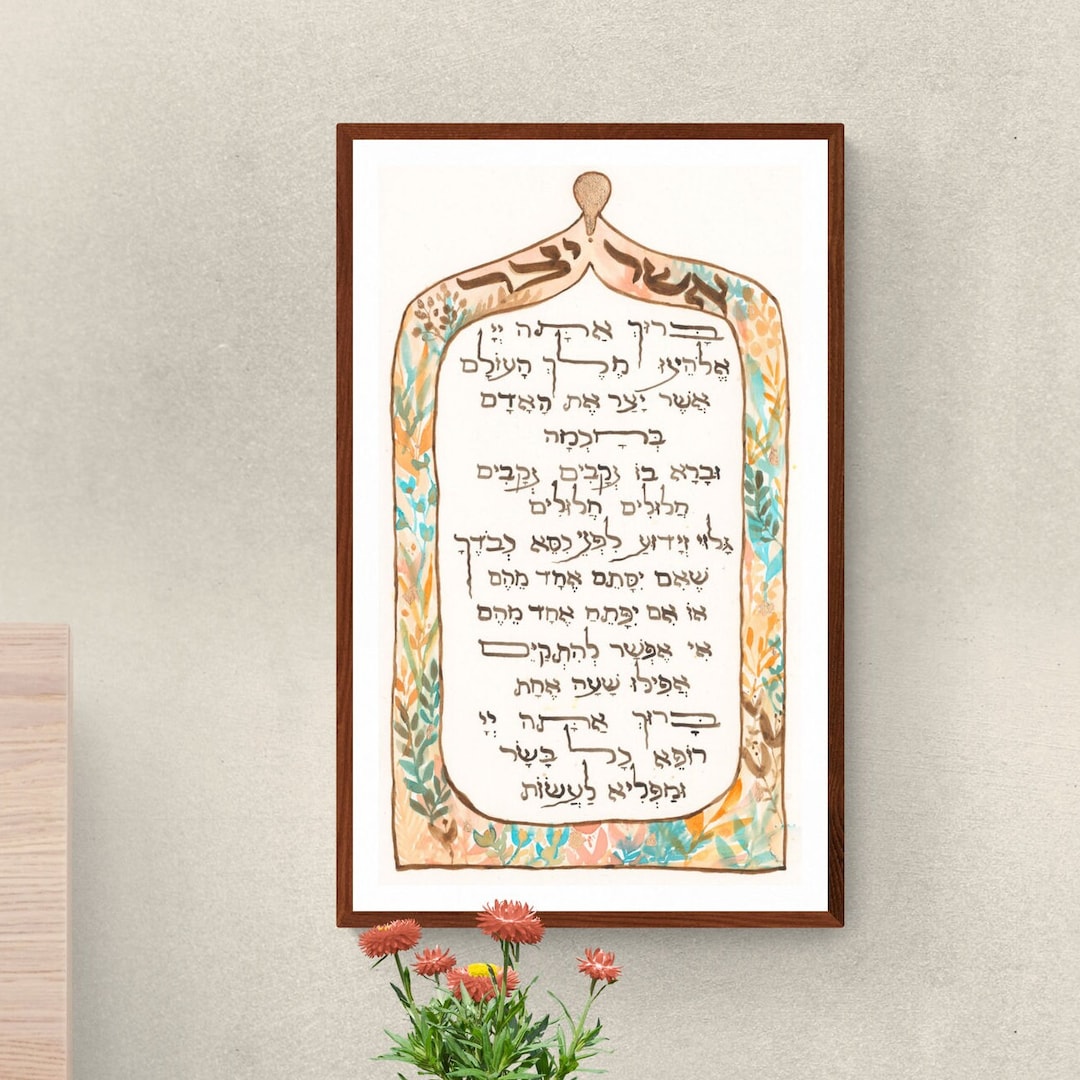 אשר יצר
בָּרוּךְ אַתָּה יְיָ
אֱלֹהֵינוּ מֶלֶךְ הָעוֹלָם
אֲשֶׁר יָצַר אֶת הָאָדָם
בְּחָכְמָה
וּבָרָא בוֹ נְקָבִים נְקָבִים
חֲלוּלִים חֲלוּלִים
גָּלוּי וְיָדוּעַ לִפְנֵי כִסֵּא כְבֹדֶךָ
שֶׁאִם יִסָּתֵם אֶחָד מֵהֶם
אוֹ אִם יִפָּתֵחַ אֶחָד מֵהֶם
אִי אֶפְשָׁר לְהִתְקַיֵּם
אֲפִילוּ שָׁעָה אֶחָת
בָּרוּךְ אַתָּה יְיָ
רוֹפֵא כָל בָּשָׂר
וּמַפְלִיא לַעֲשׂוֹת